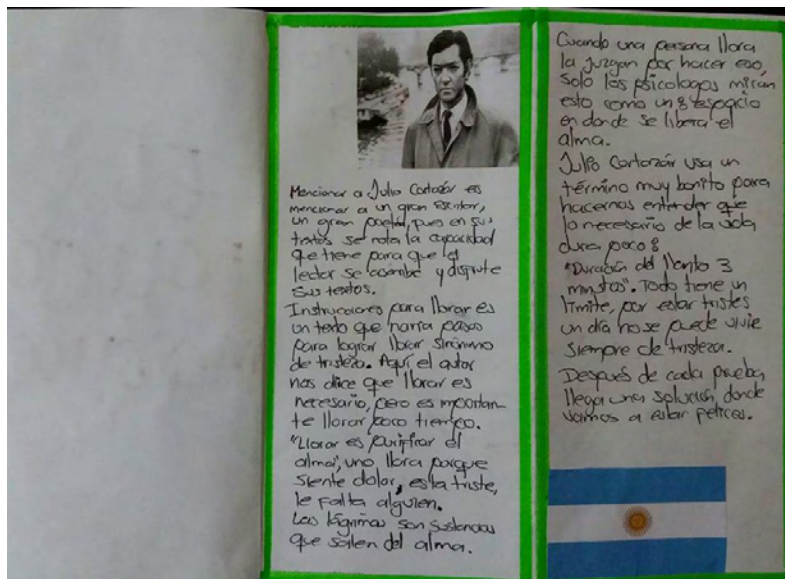 Mencionar a Julio Cortazár es
mencionar a un gran escritor,
un gran poeta, pues en sus
textos se nota la capacidad
que tiene para que el
lector se asombre y disfrute
sus textos.
Instrucciones para llorar es
un texto que narra pasos
para lograr llorar sinónimo
de tristeza. Aquí el autor
nos dice que llorar es
necesario, pero es importan-
te llorar poco tiempo.
"Llorar es purificar el
alma", uno llora porque
siente dolor, esta triste,
le falta alguien.
Las lágrimas son sustancias
que salen del alma.
Cuando una persona llora
la juzgan por hacer eso,
solo los psicologos miran
esto como un espacio
en donde se libera el
alma.
Julio Cortazár usa un
término muy bonito para
hacernos entender que
lo necesario de la vida
dura poco:
"Duración del llanto 3
minutos". Todo tiene un
límite, por estar tristes
un día no se puede vivir
siempre de tristeza.
Después de cada prueba,
llega una solución, donde
vamos a estar felices.